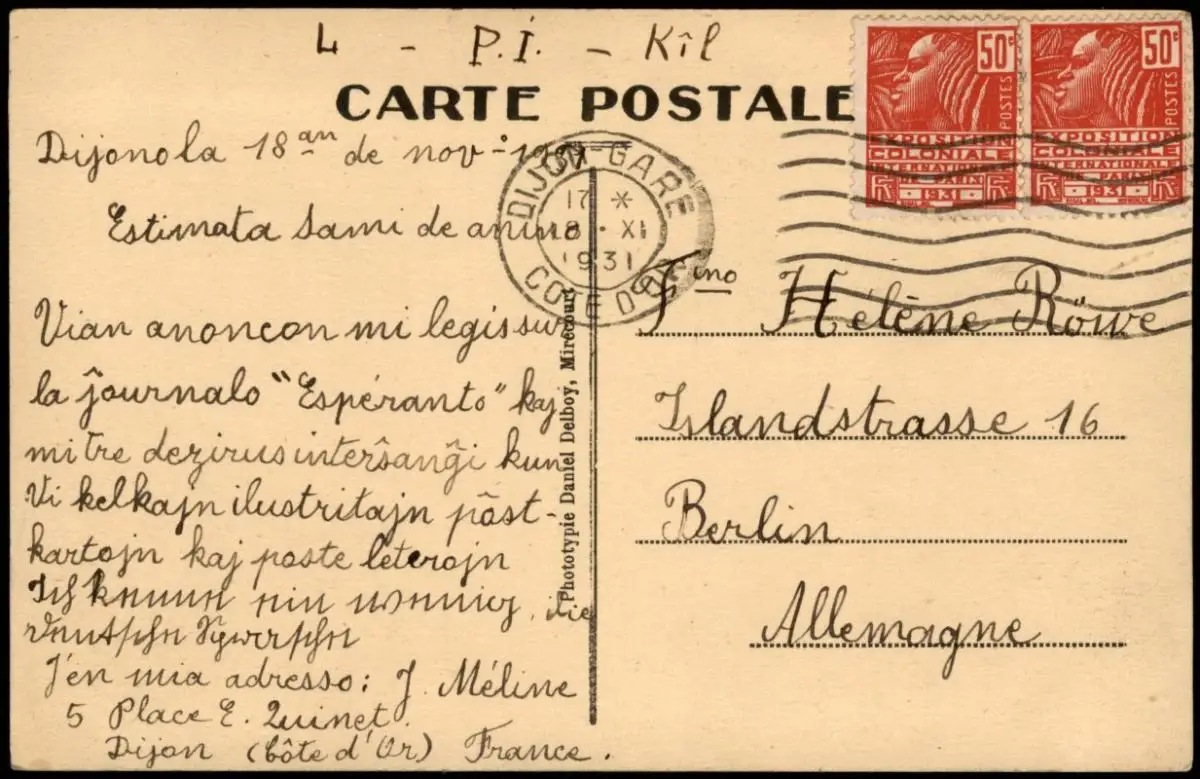 L - P.I. - Kîl
CARTE POSTALE
50c
POSTES
EXPOSITION
COLONIALE
INTERNATIONALE
DE PARIS
1931
50c
POSTES
EXPOSITION
COLONIALE
INTERNATIONALE
DE PARIS
1931
DIJON-GARE
17 *
18 · XI
1931
COTE D'OR
Dijono la 18an de nov-
Estimata Sami de anino
Vian anoncon mi legis sur
la ĵournalo "Espéranto" kaj
mi tre dezirus interŝanĝi kun
Vi kelkajn ilustritajn pôst-
kartojn kaj poste leterojn
Ich kenne ein wenig die
deutschen
J'en mia adresso: J. Méline
5 Place E. Quinet.
Dijon (Côte d'Or) France.
Phototypie Daniel Delboy, Mirecourt
Fino Hélène Röwe
Islandstrasse 16
Berlin
Allemagne